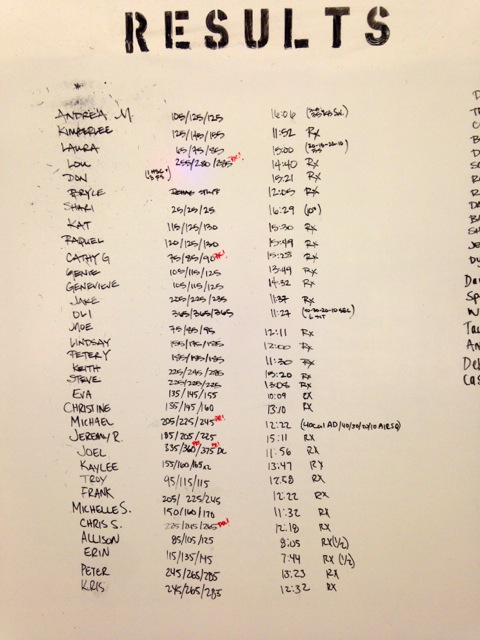 RESULTS
ANDREA M. 105/125/125 16:06
KIMBERLEE 125/145/155 11:52 RX
LAURA 65/75/85 15:00
LOU 255/280/285 PR! 14:40 RX
DON 15:21 RX
BRYLE 12:05 RX
SHARI 25/25/25 16:29
KAT 115/125/130 15:30 RX
RAQUEL 120/125/130 15:49 RX
CATHY G 75/85/90 PR! 15:28 RX
GENIE 105/115/125 13:49 RX
GENEVIEVE 105/115/125 14:32 RX
JAKE 205/225/235 11:37 RX
OLI 365/365/365 11:27
MOE 75/85/95 12:11 RX
LINDSAY 12:00 RX
PETER Y 11:30 RX
KEITH 225/245/285 15:20 RX
STEVE 225/225/225 13:08 RX
EVA 135/145/155 10:09 RX
CHRISTINE 135/145/160 13:10 RX
MICHAEL 205/225/245 PR! 12:22
JEREMY R. 185/205/225 15:11 RX
JOEL 335/360/375 DL 11:56 RX
KAYLEE 155/160/165x2 13:47 RX
TROY 95/115/115 12:58 RX
FRANK 205/225/245 12:22 RX
MICHELLE S. 150/160/170 11:32 RX
CHRIS S. 225/245/265 PR! 12:18 RX
ALLISON 85/105/125 8:05 RX (1/2)
ERIN 115/135/145 7:44 RX (1/2)
PETER 245/265/285 13:23 RX
KRIS 245/265/285 12:32 RX